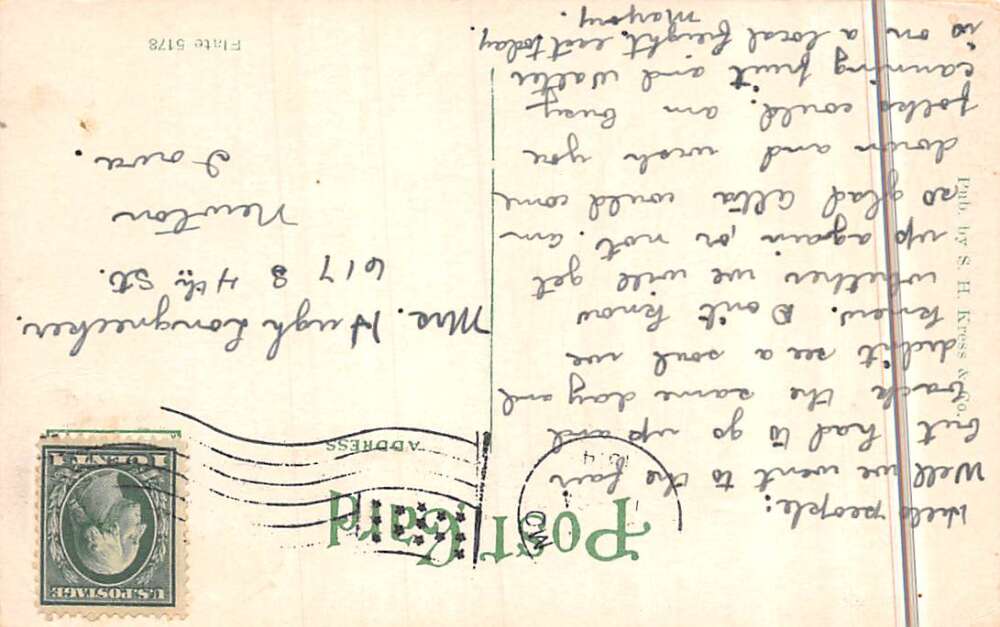 Post Card
ADDRESS
U.S. POSTAGE
1 CENT 1
MO
Hello people:
Well we went to the fair
but had to go up and
back the same day and
didn't see a soul we
knew. Don't know
whether we will get
up again or not. am
so glad Alta could come
down and wish you
folks could. am busy
canning fruit and Walter
is on a local freight east today.
Mrs. Hugh Longnecker.
617 S 4th St.
Newton
Iowa.
Pub. by S. H. Kress & Co.
Plate 5178